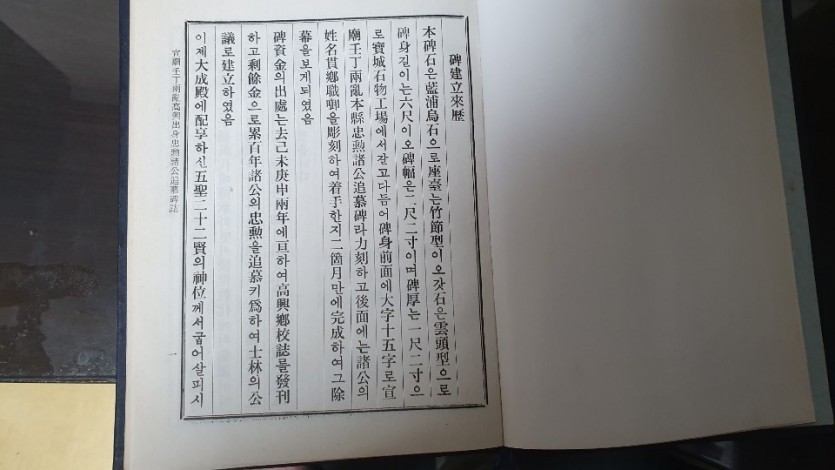 碑建立來歷
本碑石은藍浦烏石으로座臺는竹節型이오갓石은雲頭型으로
碑身길이는六尺이오碑幅은二尺二寸이며碑厚는一尺二寸으
로寶城石物工場에서갈고다듬어碑身前面에大字十五字로宣
廟壬丁兩亂本縣忠勲諸公追慕碑라力刻하고後面에는諸公의
姓名貫鄕職啣을彫刻하여着手한지二箇月만에完成하여그除
幕을보게되였음
碑資金의出處는去己未庚申兩年에亘하여高興鄕校誌를發刊
하고剩餘金으로累百年諸公의忠勲을追慕키爲하여士林의公
議로建立하였음
이제大成殿에配享하신五聖二十二賢의神位께서굽어살피시
宣廟壬丁兩亂高興出身忠勲諸公追慕碑誌
一